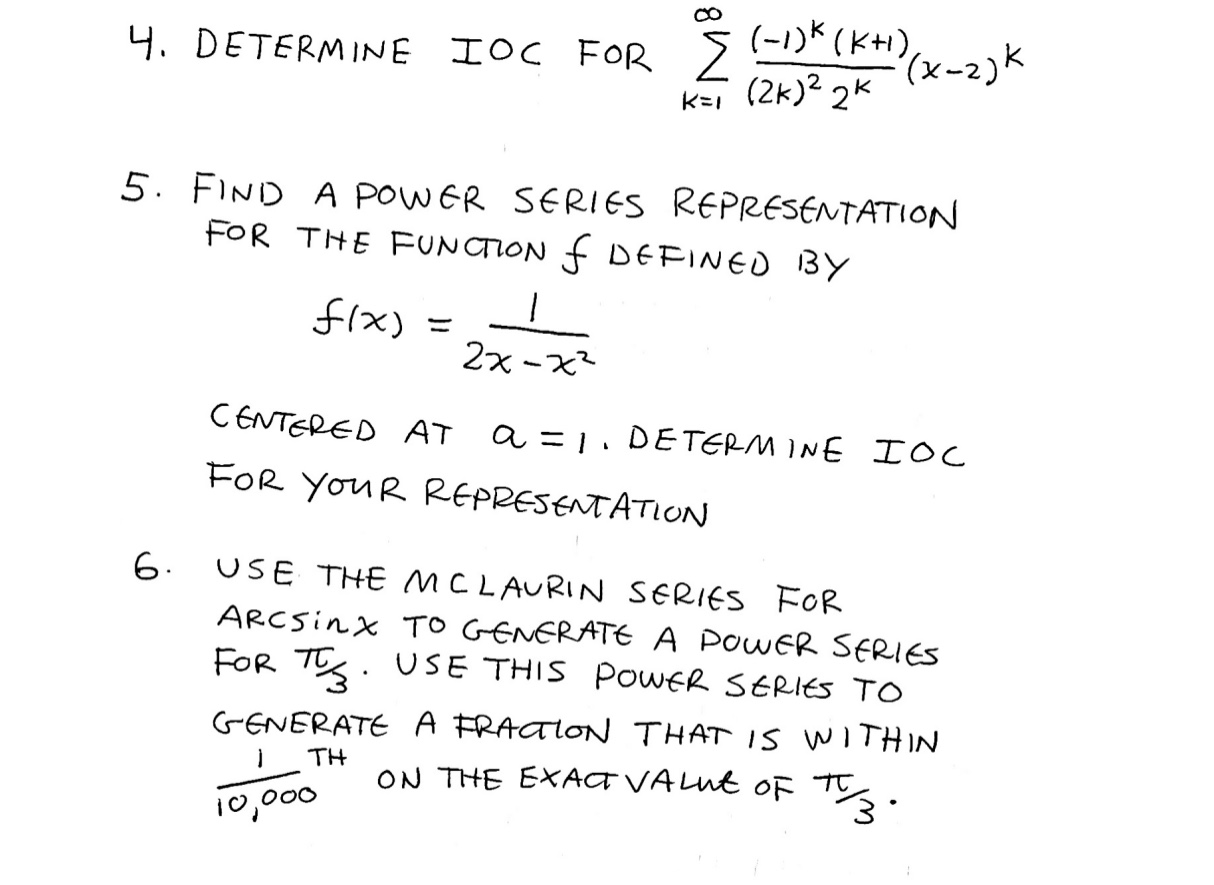 4. DETERMINE IOC FOR ∞ Σ k=1 (-1)^k (k+1) / (2k)² 2^k (x-2)^k
5. FIND A POWER SERIES REPRESENTATION
FOR THE FUNCTION f DEFINED BY
f(x) = 1 / 2x - x²
CENTERED AT a = 1. DETERMINE IOC
FOR YOUR REPRESENTATION
6. USE THE MCLAURIN SERIES FOR
ARCSinx TO GENERATE A POWER SERIES
FOR π/3. USE THIS POWER SERIES TO
GENERATE A FRACTION THAT IS WITHIN
1/10,000 TH ON THE EXACT VALUE OF π/3.